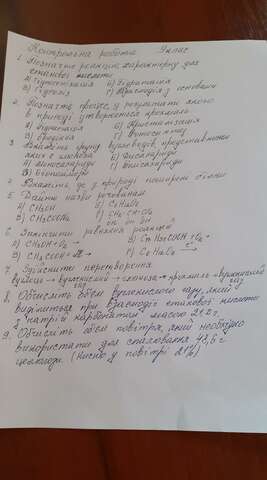 Контрольна робота 9 клас
1. Позначте реакцію, характерну для
етанової кислоти
А) Гідрогенізація Б) Гідратація
В) Гідроліз Г) Взаємодія з основами
2. Позначте процес, у результаті якого
в природі утворюється крохмаль
А) Гідратація Б) Кристалізація
3. Вкажіть групу вуглеводів, представником
яких є глюкоза
А) Моносахариди Б) Дисахариди
В) Біополімери Г) Полісахариди
4. Вкажіть, де у природі поширені білки
5. Дайте назви речовинам
А) CH3OH Б) C6H12O6
В) CH3COOH Г) CH2-CH-CH2
OH OH OH
6. Закінчити рівняння реакцій
А) CH3OH + O2 →
В) CH3COOH +
7. Здійсніть перетворення
вуглець → вуглекислий → глюкоза → крохмаль → вуглекислий
газ газ
8. Обчисліть об'єм вуглекислого газу, який
виділиться при взаємодії етанової кислоти
з натрій карбонатом масою 21,2 г.
9. Обчисліть об'єм повітря, який необхідно
використати для спалювання 48,6 г
целюлози. (Кисню у повітрі 21%)